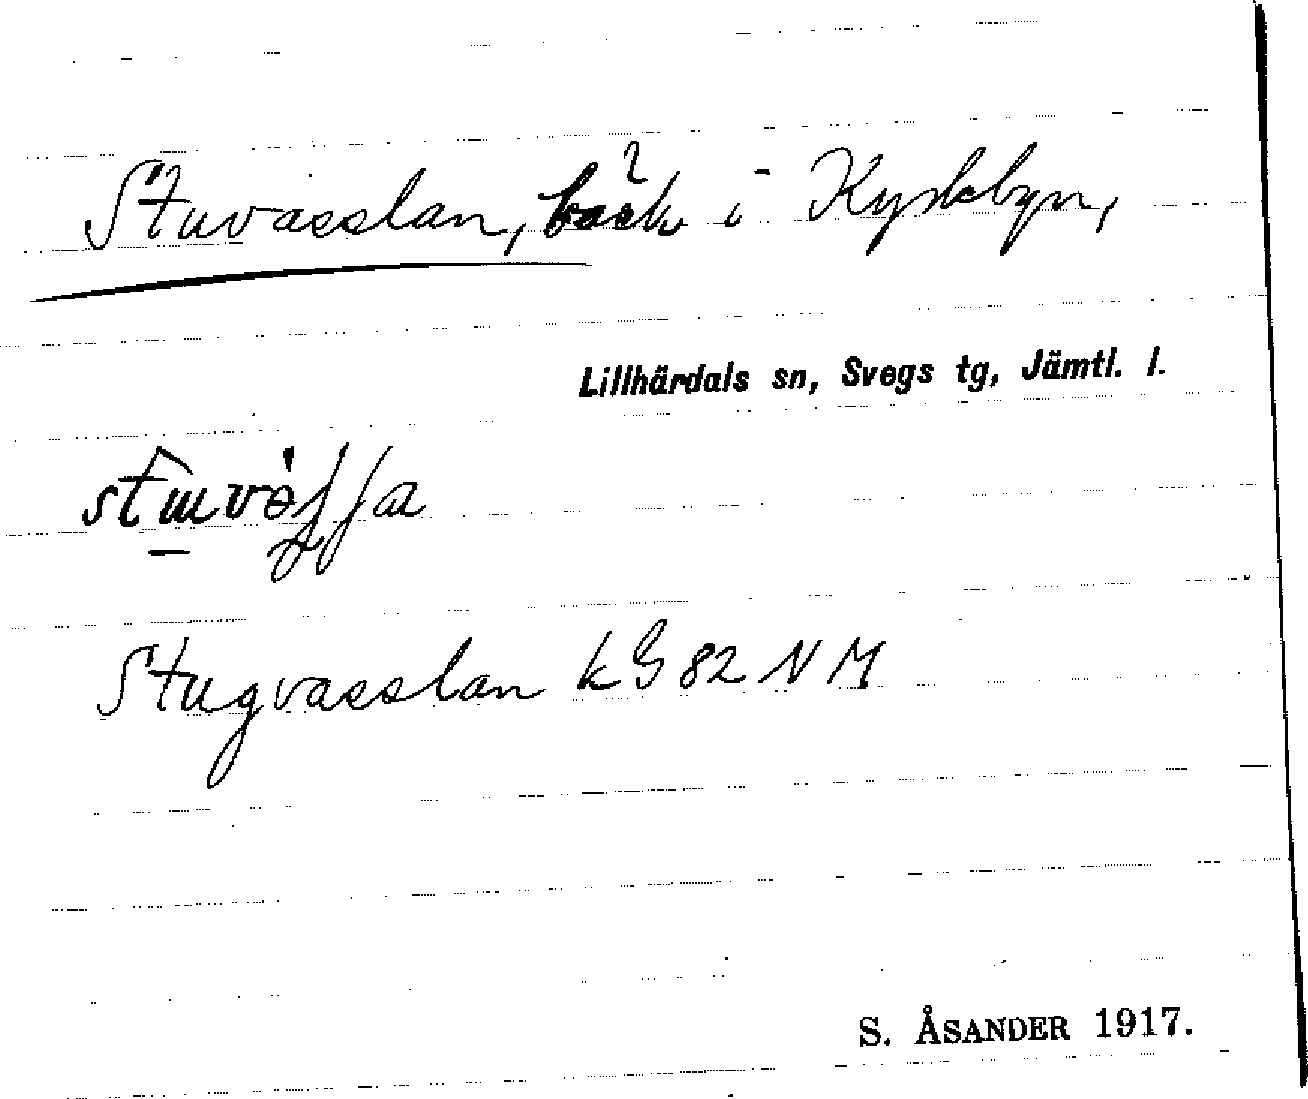 Stuvasslan, bäck i Kyrkbyn,
Lillhärdals sn, Svegs tg, Jämtl. l.
Stugvasslan kG 82 NM
S. ÅSANDER 1917.